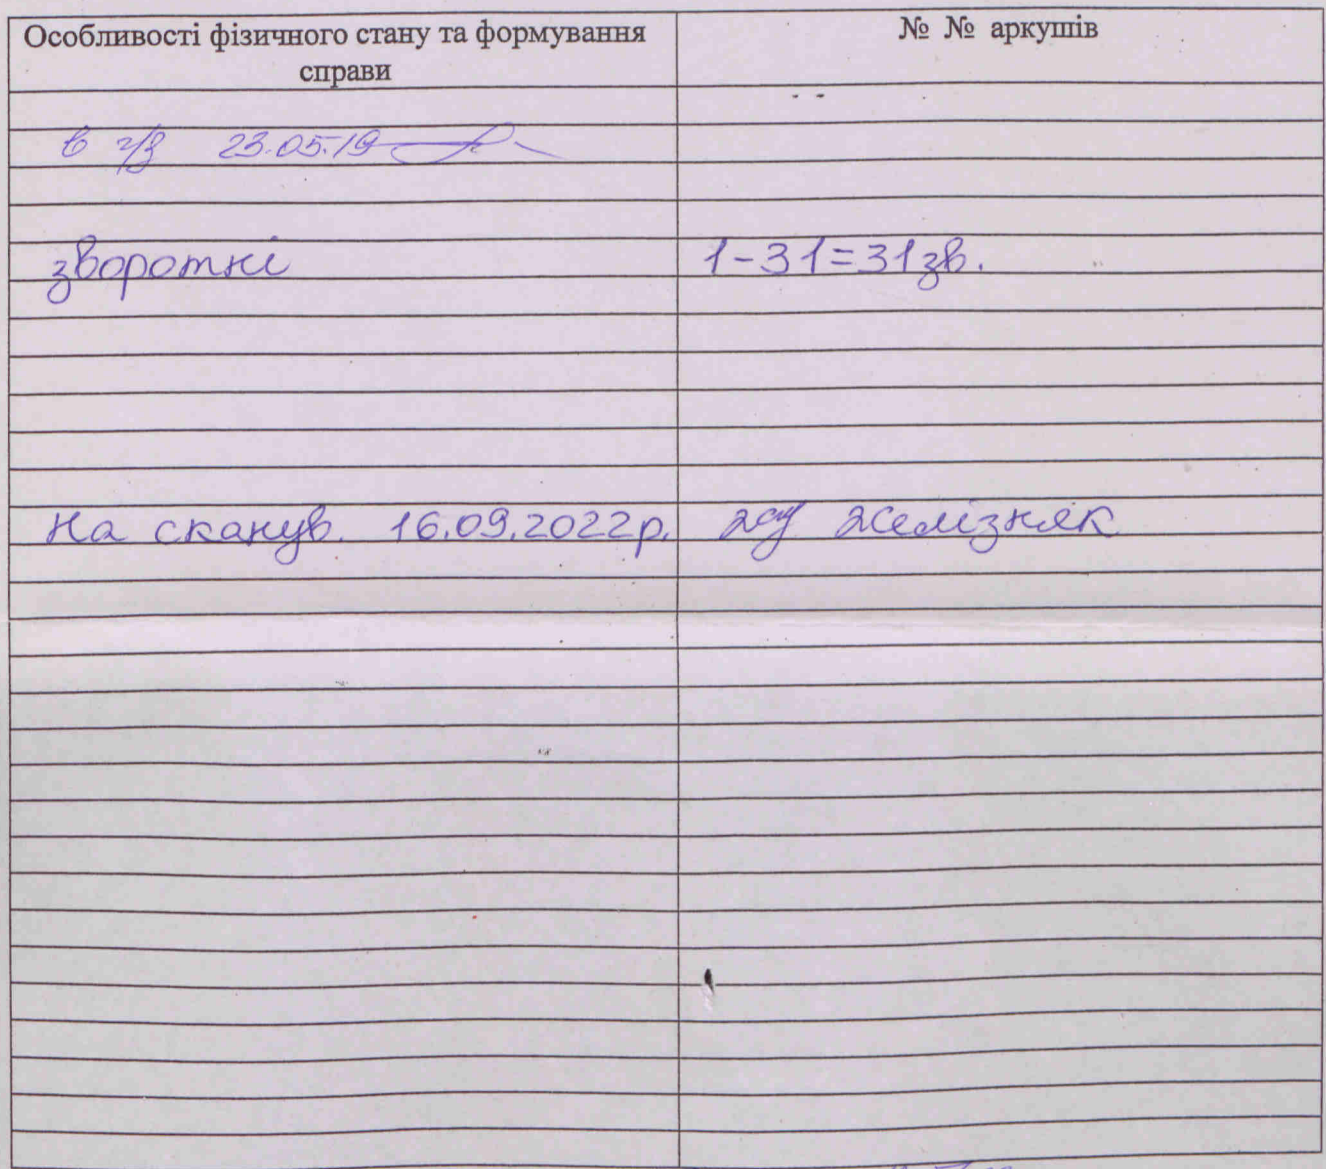 Особливості фізичного стану та формування
справи
№ № аркушів
в ч/з 23.05.19
зворотні 1-31=31зв.
На сканув. 16.09.2022р. Желізняк